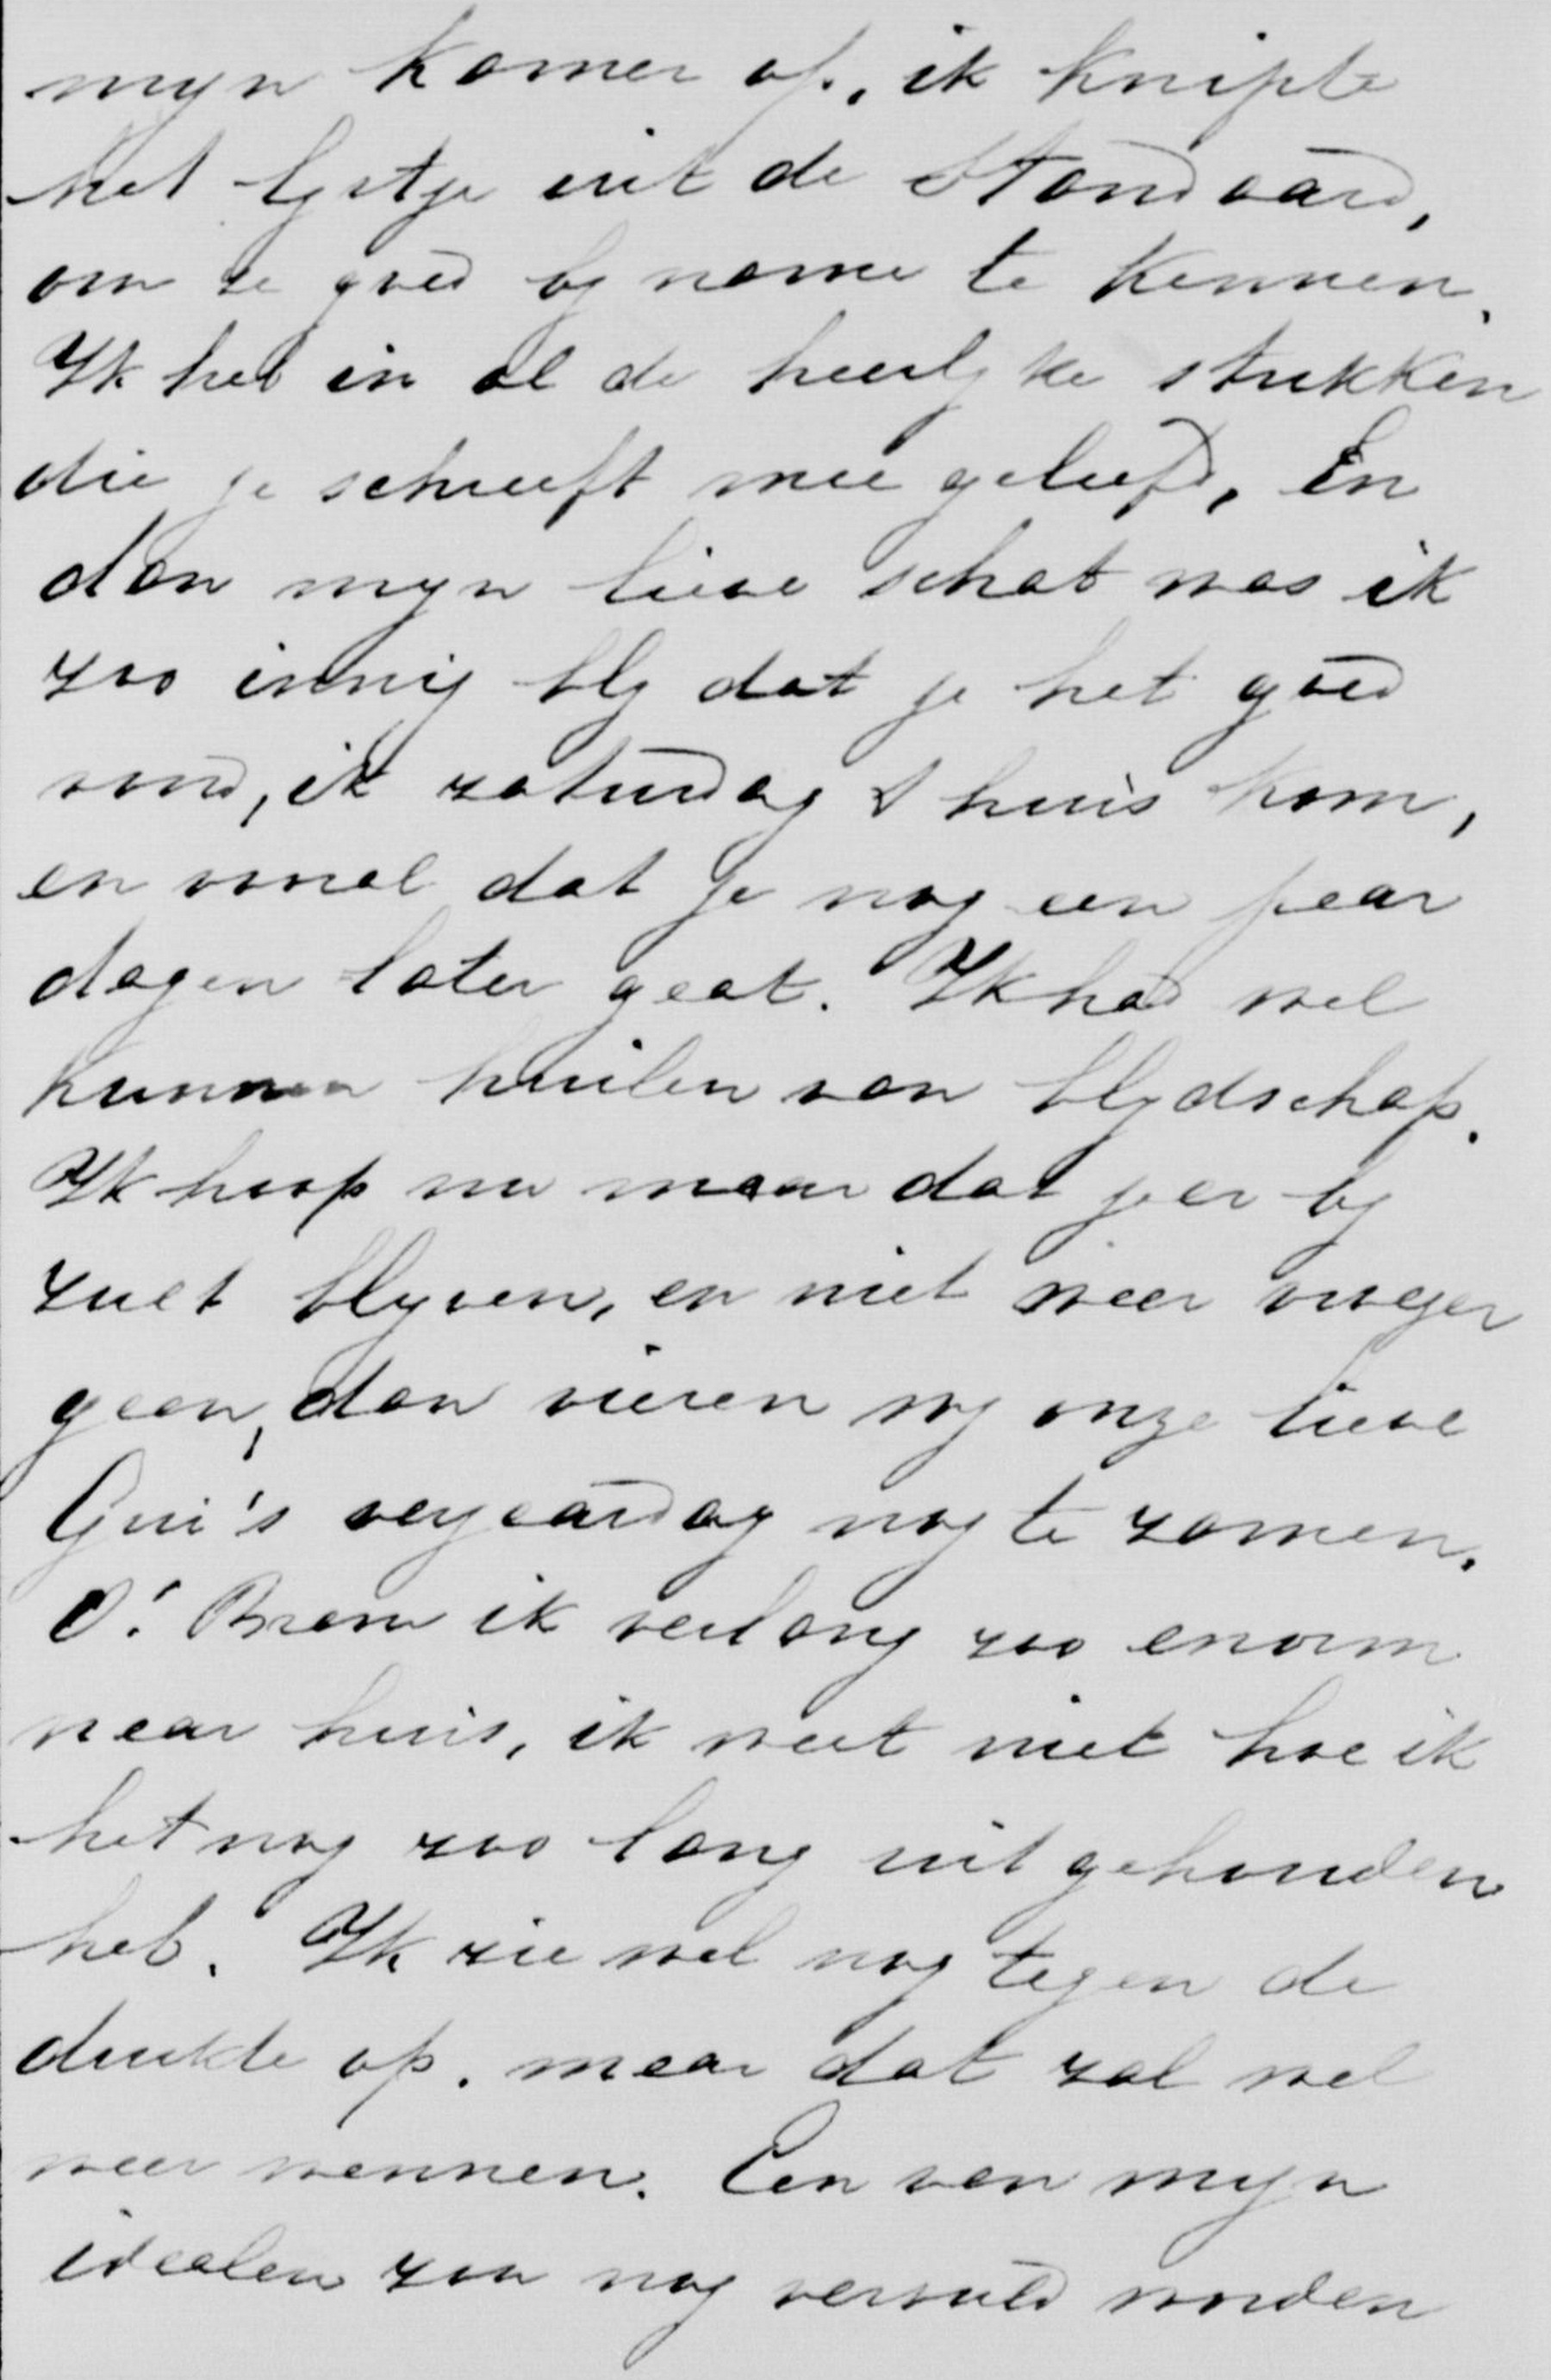 myn kamer op, ik knipte
het lystje uit de Standaard,
om ze goed by name te kennen.
Ik heb in al de heerlyke stukken
die je schreeft mee geleefd, En
dan myn lieve schat was ik
zoo innig bly dat je het goed
vond, ik zaturdag thuis kom,
en vooral dat je nog een paar
dagen later gaat. Ik had wel
kunnen huilen van blydschap.
Ik hoop nu maar dat je er by
zult blyven, en niet weer vroeger
gaan, dan vieren wy onze lieve
Guu's verjaardag nog te zamen.
O! Bram ik verlang zoo enorm
naar huis, ik weet niet hoe ik
het nog zoo lang uitgehouden
heb. Ik zie wel nog tegen de
drukte op. maar dat zal wel
weer wennen. Een van myn
idealen zou nog vervuld worden